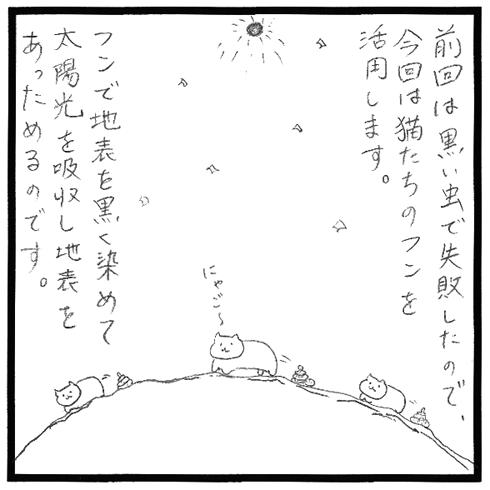 前回は黒い虫で失敗したので、
今回は猫たちのフンを
活用します。
フンで地表を黒く染めて
太陽光を吸収し地表を
あっためるのです。
にゃご〜